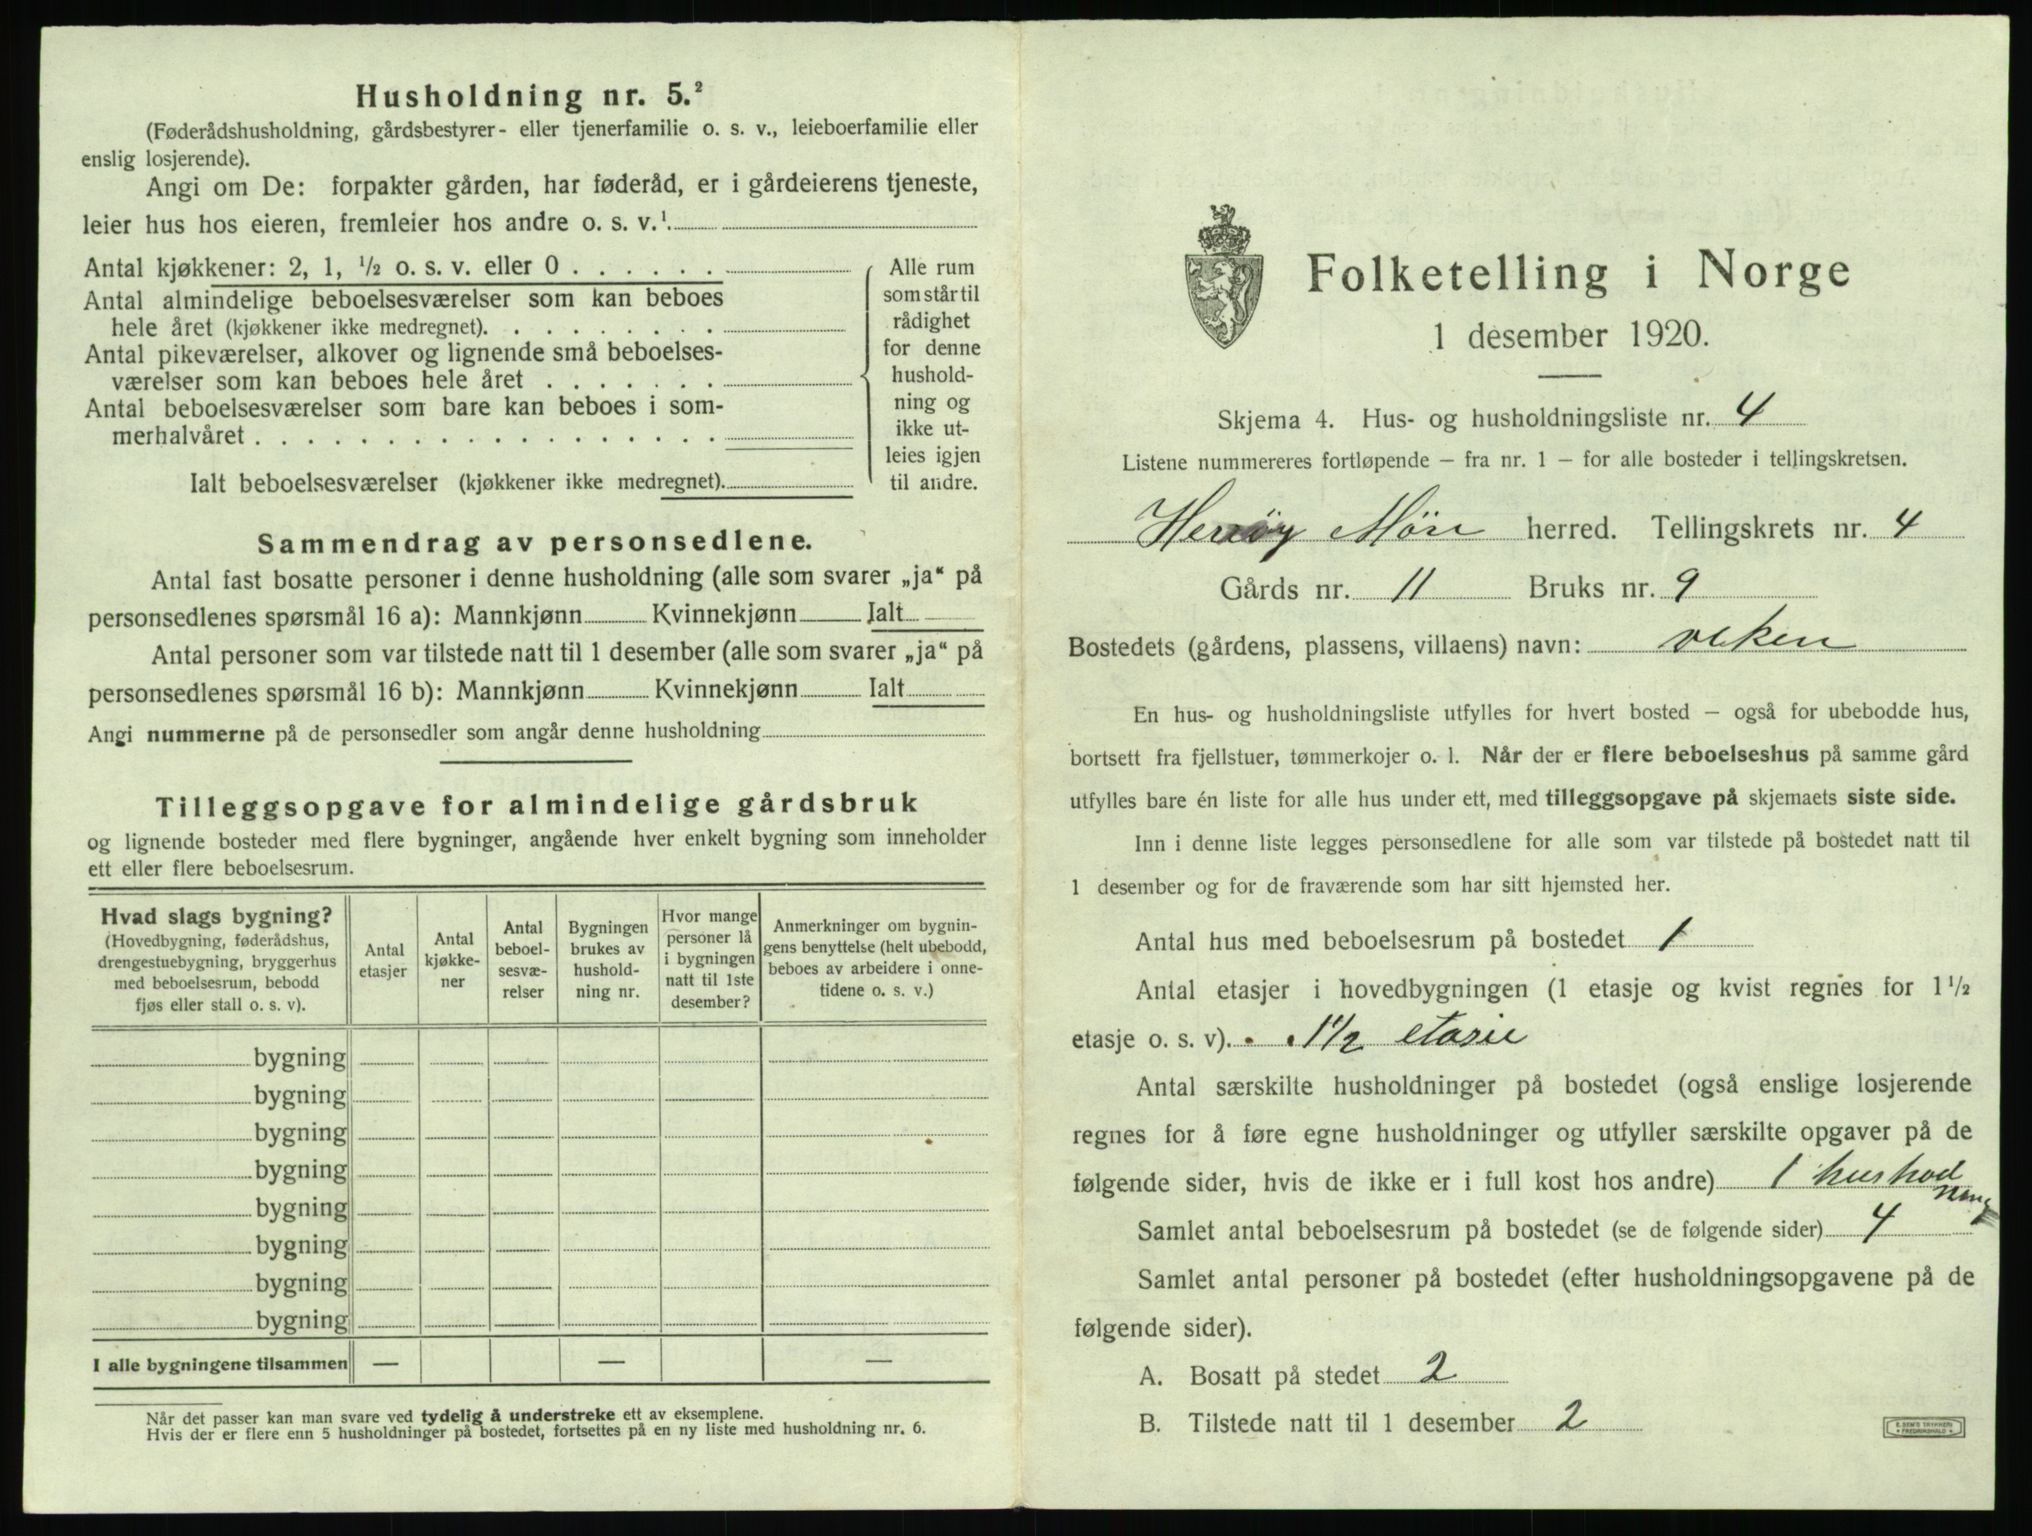 Husholdning nr. 5.²
(Føderådshusholdning, gårdsbestyrer- eller tjenerfamilie o. s. v., leieboerfamilie eller
enslig losjerende).
Angi om De: forpakter gården, har føderåd, er i gårdeierens tjeneste,
leier hus hos eieren, fremleier hos andre o. s. v.¹.
Antal kjøkkener: 2, 1, ½ o. s. v. eller 0 . . . . . .
Antal almindelige beboelsesværelser som kan beboes
hele året (kjøkkener ikke medregnet). . . . . . . . .
Antal pikeværelser, alkover og lignende små beboelses-
værelser som kan beboes hele året . . . . . . .
Antal beboelsesværelser som bare kan beboes i som-
merhalvåret . . . . . . . . . . . . . . . . . .
Ialt beboelsesværelser (kjøkkener ikke medregnet).
Alle rum
som står til
rådighet
for denne
hushold-
ning og
ikke ut-
leies igjen
til andre.
Sammendrag av personsedlene.
Antal fast bosatte personer i denne husholdning (alle som svarer „ja“ på
personsedlenes spørsmål 16 a): Mannkjønn Kvinnekjønn Ialt
Antal personer som var tilstede natt til 1 desember (alle som svarer „ja“ på
personsedlenes spørsmål 16 b): Mannkjønn Kvinnekjønn Ialt
Angi nummerne på de personsedler som angår denne husholdning
Tilleggsopgave for almindelige gårdsbruk
og lignende bosteder med flere bygninger, angående hver enkelt bygning som inneholder
ett eller flere beboelsesrum.
Hvad slags bygning?
(Hovedbygning, føderådshus,
drengestuebygning, bryggerhus
med beboelsesrum, bebodd
fjøs eller stall o. s. v).
Antal
etasjer
Antal
kjøkke-
ner
Antal
beboel-
sesvæ-
relser
Bygningen
brukes av
hushold-
ning nr.
Hvor mange
personer lå
i bygningen
natt til 1ste
desember?
Anmerkninger om bygnin-
gens benyttelse (helt ubebodd,
beboes av arbeidere i onne-
tidene o. s. v.)
bygning
bygning
bygning
bygning
bygning
bygning
bygning
bygning
I alle bygningene tilsammen — — —
Når det passer kan man svare ved tydelig å understreke ett av eksemplene.
Hvis der er flere enn 5 husholdninger på bostedet, fortsettes på en ny liste med husholdning nr. 6.
Folketelling i Norge
1 desember 1920.
Skjema 4. Hus- og husholdningsliste nr. 4
Listene nummereres fortløpende – fra nr. 1 – for alle bosteder i tellingskretsen.
Herøy Møre herred. Tellingskrets nr. 4
Gårds nr. 11 Bruks nr. 9
Bostedets (gårdens, plassens, villaens) navn: viken
En hus- og husholdningsliste utfylles for hvert bosted – også for ubebodde hus,
bortsett fra fjellstuer, tømmerkojer o. l. Når der er flere beboelseshus på samme gård
utfylles bare én liste for alle hus under ett, med tilleggsopgave på skjemaets siste side.
Inn i denne liste legges personsedlene for alle som var tilstede på bostedet natt til
1 desember og for de fraværende som har sitt hjemsted her.
Antal hus med beboelsesrum på bostedet 1
Antal etasjer i hovedbygningen (1 etasje og kvist regnes for 1½
etasje o. s. v). 1½ etasie
Antal særskilte husholdninger på bostedet (også enslige losjerende
regnes for å føre egne husholdninger og utfyller særskilte opgaver på de
følgende sider, hvis de ikke er i full kost hos andre) 1 hushod
ning
Samlet antal beboelsesrum på bostedet (se de følgende sider) 4
Samlet antal personer på bostedet (efter husholdningsopgavene på de
følgende sider).
A. Bosatt på stedet 2
B. Tilstede natt til 1 desember 2
E. SEM'S TRYKKERI
FREDRIKSHALD